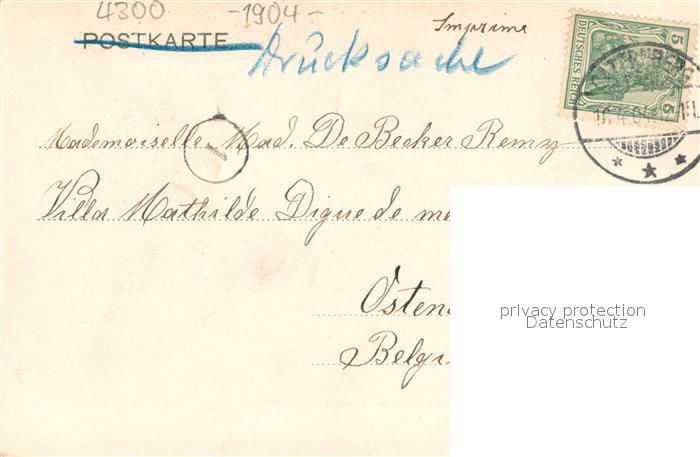 4300 -1904-
Imprimé
POSTKARTE
Drucksache
5 DEUTSCHES REICH 5
1
Mademoiselle Mad. De Becker Remy
Villa Mathilde Digue de
Belgi
privacy protection
Datenschutz